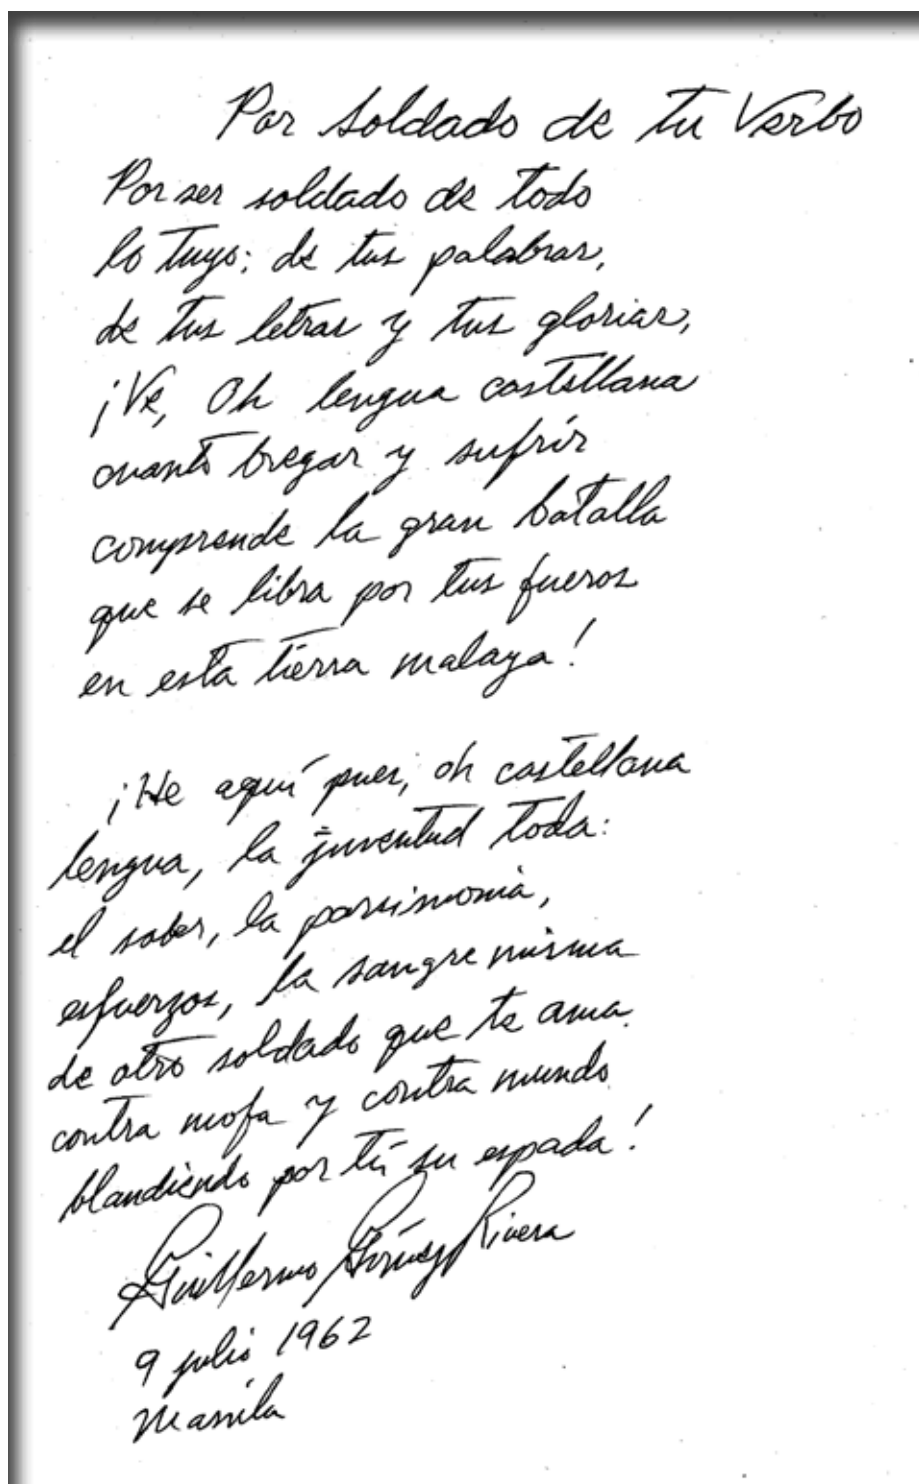 Por Soldado de tu Verbo
Por ser soldado de todo
lo tuyo: de tus palabras,
de tus letras y tus glorias,
¡Vé, Oh lengua castellana
cuanto bregar y sufrír
comprende la gran batalla
que se libra por tus fueros
en esta tierra malaya!
¡He aquí pues, oh castellana
lengua, la juventud toda:
el saber, la parsimonia,
esfuerzos, la sangre misma
de otro soldado que te ama
contra mofa y contra mundo
blandiendo por tí su espada!
Guillermo Gómez Rivera
9 julio 1962
Manila